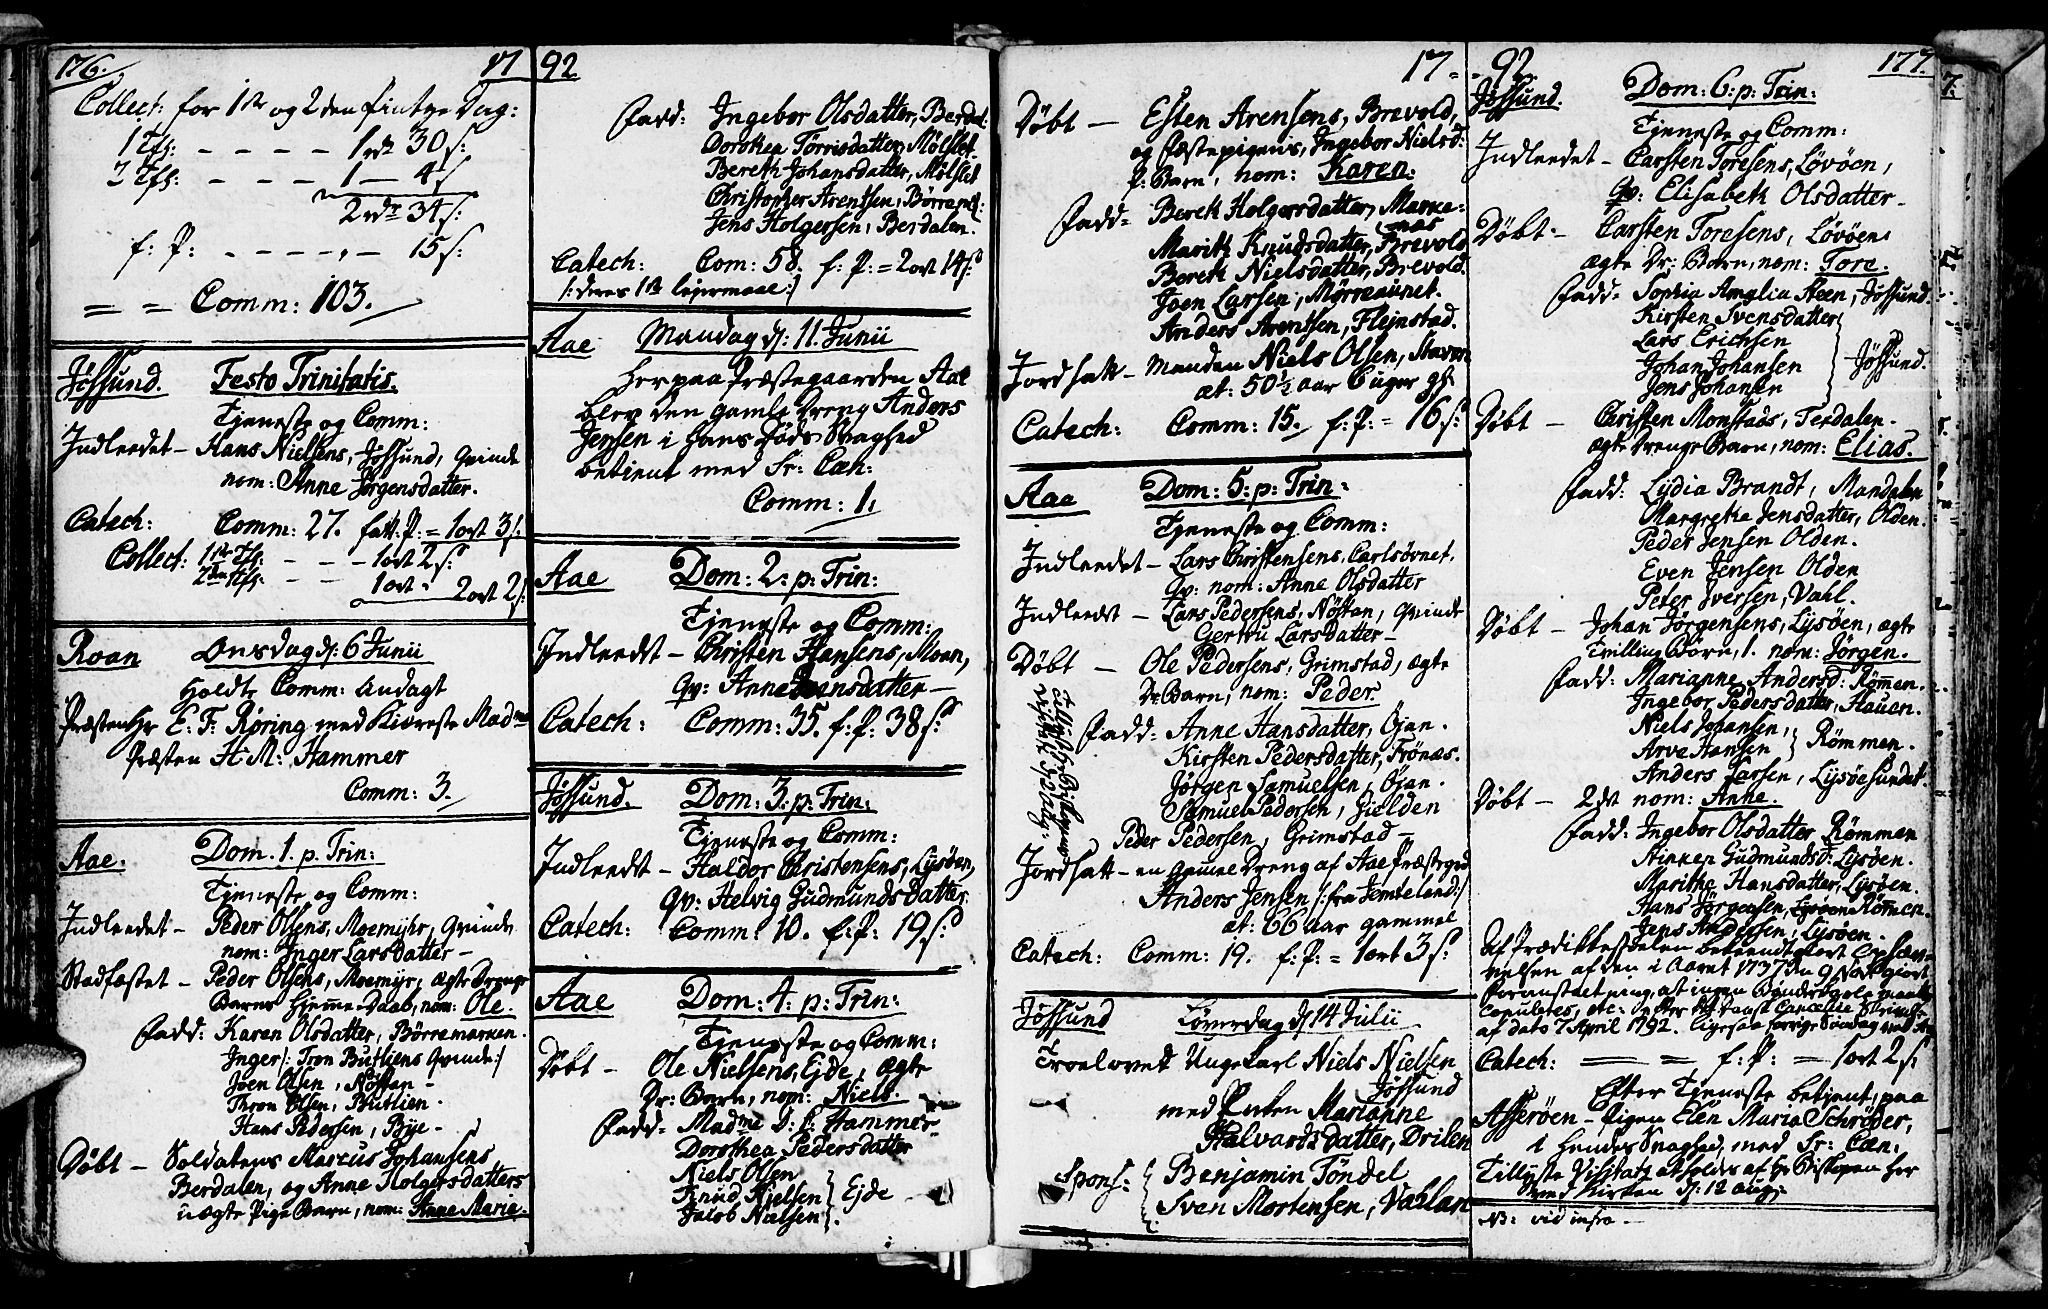 176. 17
Collect: for 1ste og 2den Pintze Dag:
1 Tfl: - - - - 1 rdr 30 s:
2 Tfl: - - - 1 — 4 s
2 rdr 34 s:
f: P: - - - - - 15 s:
= = Comm: 103.
Jössund. Festo Trinitatis.
Tjeneste og Comm:
Indleedet – Hans Nielsens, Jössund, Qvinde
nom: Anne Jörgensdatter.
Catech: Comm: 27. fatt. P: = 1 ort 3 s:
Collect: 1ste Tfl: - - - 1 ort 2 s:
2den Tfl: - - 1 ort - 2 ort 2 s:
Roan Onsdag d: 6 Junii
holdt Comm: Andagt
Præsten Hr E. F. Röring med Kiæreste Madme
Præsten H: M: Hammer
Comm: 3.
Aae. Dom. 1. p. Trin:
Tjeneste og Comm:
Indleedet – Peder Olsens, Moemyhr, Qvinde
nom: Inger Larsdatter –
Stadfæstet – Peder Olsens, Moemyr, ægte Drenge
Barns Hjemme Daab, nom: Ole.
Fadd: Karen Olsdatter, Börremarken.
Inger /: Tron Butliens Qvinde :/
Joen Olsen, Nöstan –
Thron Olsen, Butlien.
Hans Pedersen, Bye –
Döbt – Soldatens Marcus Johansens
Berdalen, og Anne Holgersdatters
uægte Pige Barn, nom: Anne Marie.
92
Fadd: Ingebor Olsdatter, Berdal:
Dorothea Törrisdatter, Mölslet.
Bereth Johansdatter, Mölslet
Christopher Arentsen, Börremk:
Jens Holgersen, Berdalen.
Catech: Com: 58. f: P: = 2 ort 14 s:
/: deres 1ste lejermaal :/
Aae Mandag d: 11. Junii
her paa Præstegaarden Aae
blev den gamle Dreng Anders
Jensen i hans Döds Svaghed
betient med Sr: Cæn:
Comm: 1.
Aae Dom: 2: p: Trin:
Tjeneste og Comm:
Indleedet – Christen Hansens, Moan,
Qv: Anne Jensdatter –
Catech: Comm: 35. f: P: 38 s:
Jössund. Dom: 3: p: Trin:
Tjeneste og Comm:
Indleedt – Haldor Christensens, Lysöen,
Qv: Helvig Gudmunds datter.
Catech: Comm: 10. f: P: 19 s:
Aae Dom: 4: p: Trin:
Tjeneste og Comm:
Döbt – Ole Nielsens, Ejde, ægte
Dr: Barn, nom: Niels.
Fadd = Madme D: C: Hammer
Dorothea Pedersdatter
Niels Olsen
Knud Nielsen } Ejde
Jacob Nielsen
17
Döbt – Esten Arensens, Brevold,
og Fæstepigens, Ingebor Nielsd:
P: Barn, nom: Karen.
Fadd = Bereth Holgersdatter, Marke-
næs
Marith Knudsdatter, Brevold
Bereth Nielsdatter, Brevold.
Joen Larsen, Mörreaunet.
Anders Arentsen, Flejnstad.
Jordsatt – Manden Niels Olsen,
æt: 50½ aar 6 uger gl:
Catech: Comm: 15. f: P: = 16 s:
Aae Dom: 5: p: Trin:
Tjeneste og Comm:
Indleedet – Lars Christensens, Carlsövnet.
Qv: nom: Anne Olsdatter
Indleedt – Lars Pedersens, Nöstan, Qvinde
Gertru Larsdatter –
Döbt – Ole Pedersens, Grimstad, ægte
Dr: Barn, nom: Peder
Fadd = Anne Hansdatter, Ojan.
Kirsten Pedersdatter, Frönæs.
Jörgen Samuelsen, Ojan.
Samuel Pedersen, Gielden
Peder Pedersen, Grimstad –
Jordsatt – en gamel Dreng af Aae Præstegrd
Anders Jensen /: fra Jemteland :/
æt: 66 aar gammel
Catech: Comm: 19. f: P: = 1 ort 3 s:
Jössund Löverdag d: 14 Julii
Troelovet Ungekarl Niels Nielsen
Jössund
med Enken Marianne
Halvardsdatter, Drilen
Spons: { Benjamin Töndel
Sven Mortensen, Vallan
92. 177.
Jössund. Dom: 6: p: Trin:
Tjeneste og Comm:
Indleedet – Carsten Toresens, Lövöen,
Qv: Elisabeth Olsdatter –
Döbt – Carsten Toresens, Lövöen
ægte Dr: Barn, nom: Tore.
Fadd = Sophia Amalia Steen, Jössund.
Kirsten Svensdatter
Lars Erichsen
Johan Johansen } Jössund.
Jens Johansen
Döbt – Christen Monstads, Terdalen.
ægte Drenge Barn, nom: Elias.
Fadd: Lydia Brandt, Mandalen
Margretha Jensdatter, Olden.
Peder Jensen Olden.
Even Jensen Olden
Peter Iversen, Vahl.
Döbt – Johan Jörgensens, Lysöen, ægte
Tvilling Börn, 1. nom: Jörgen.
Fadd: Marianne Andersd: Römmen.
Ingebor Pedersdatter, Hauen.
Niels Johansen,
Arve Hansen } Römmen.
Anders Larsen, Lysöesundet.
Döbt – 2det nom: Anne.
Fadd: Ingebor Olsdatter Römmen
Stinken Gudmundsd: Lysöen.
Marithe Hansdatter, Lysöen.
Hans Jörgensen, Lysöen Römmen.
Jens Andersen, Lysöen.
af Prædikkestolen bekiendtgiort
af den i Aaret 1737 den 9 Nov: giort
Foranstaltning, at ingen
copuleres, etc:
af dato 7 April 1792.
Catech: = = f: P: = 1 ort 2 s:
Efter Tjeneste betjent, paa
Asseröen – Pigen Elen Maria Schröder,
i hendes Svaghed, med Sr: Cæn:
Tillyste Visitatz at holdes af Hr Biskopen her
ved Kirken d: 12 aug:
NB: vid infra –